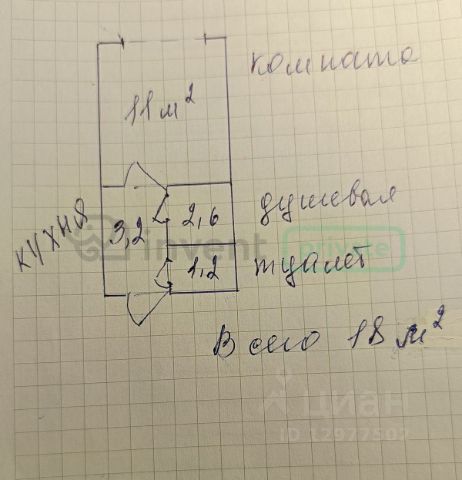 комната
11 м²
кухня
3,2
2,6
душевая
1,2
туалет
invent
private
Всего 18 м²
Циан